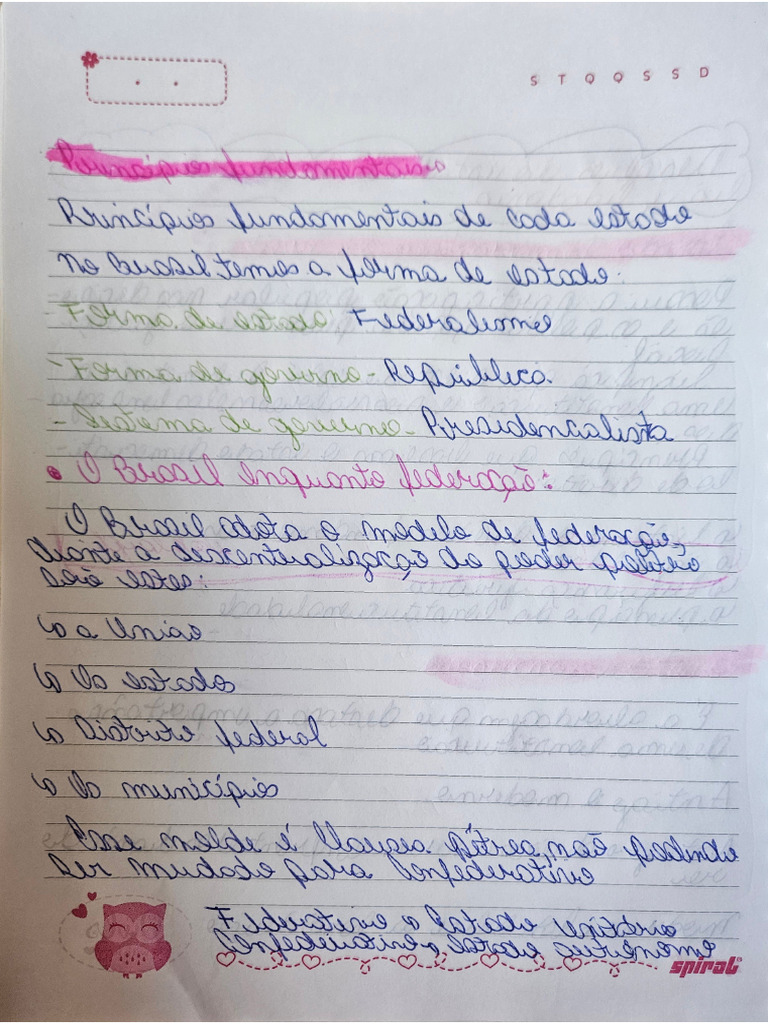 S T Q Q S S D
Princípios fundamentais
Princípios fundamentais de cada estado
No Brasil temos a forma de estado:
- Forma de estado: Federalismo
- Forma de governo - República.
- Sistema de governo - Presidencalista
• O Brasil enquanto federação:
O Brasil adota o modelo de federação,
diante a descentralização do poder político
são estes:
↳ a União
↳ Os estados
↳ Distrito federal
↳ Os municípios
Esse molde é Clausea pétrea, não podendo
ser mudado para Confederativo
Federativo o Estado unitário
Confederativo o estado autônomo
spiral